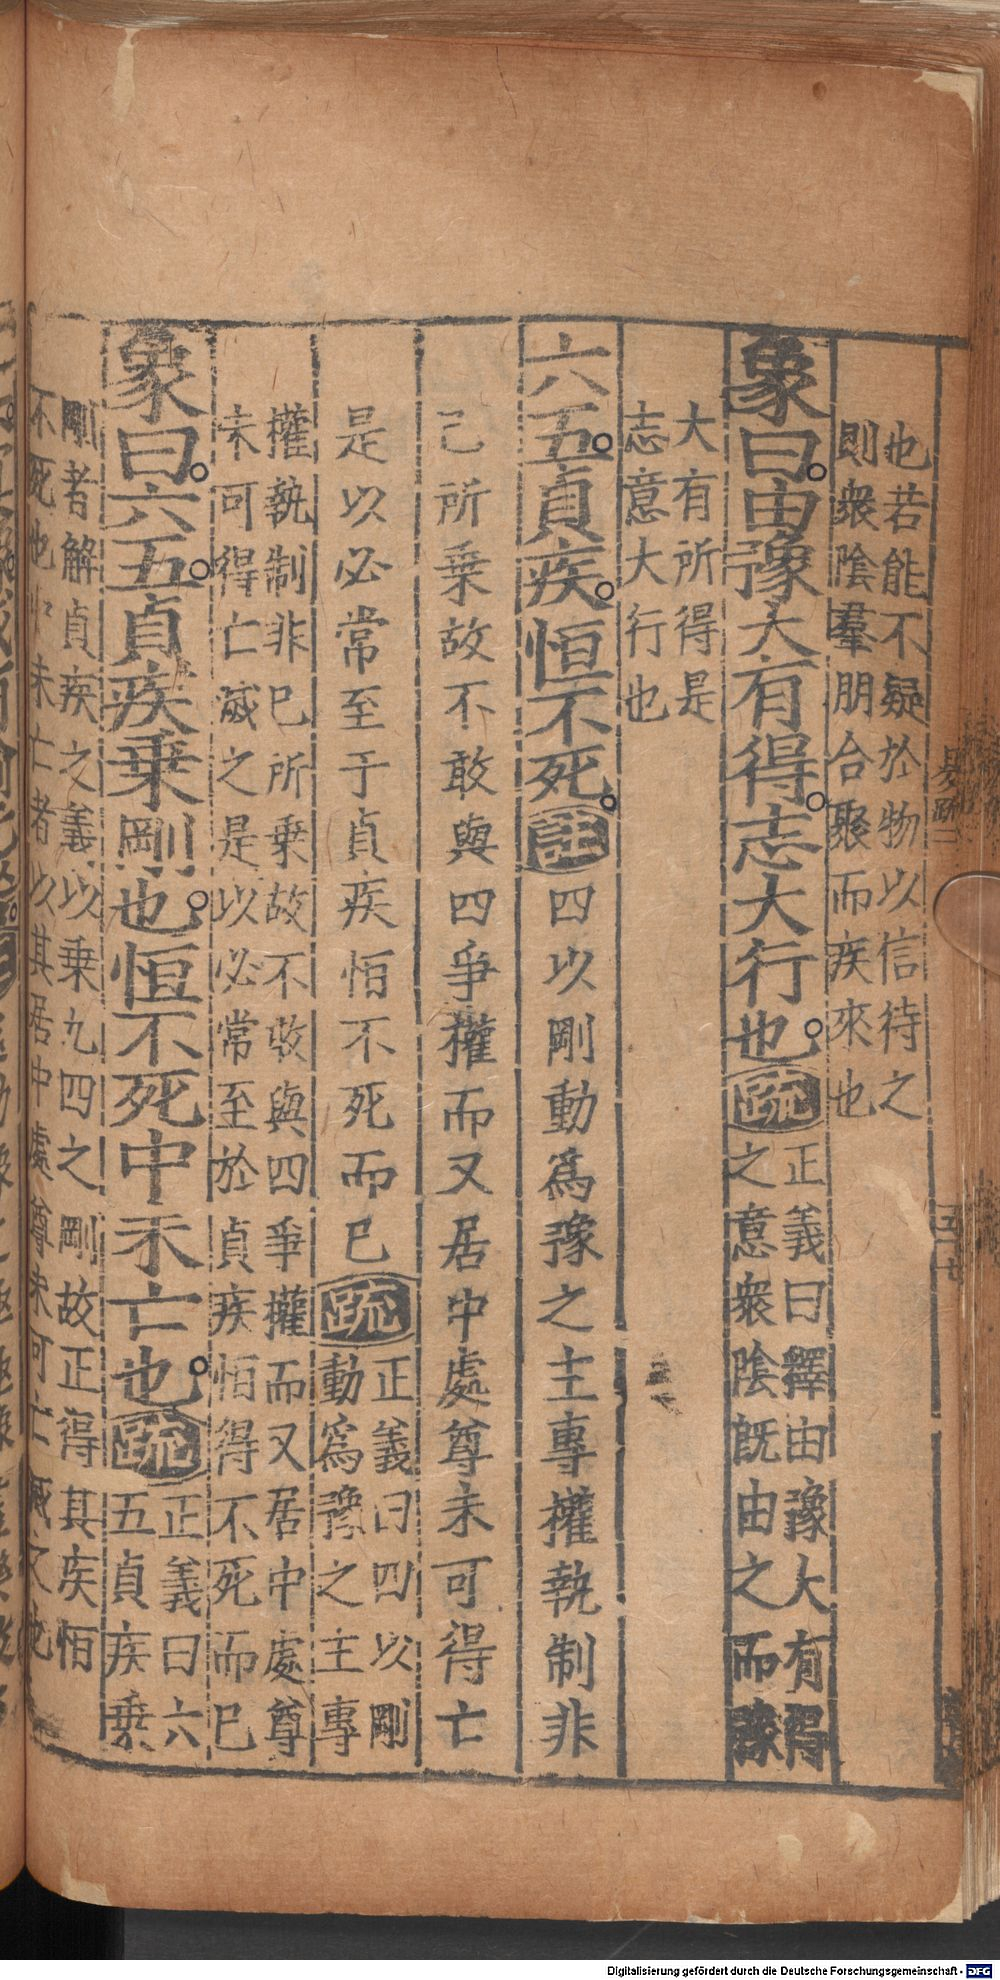 也若能不疑於物以信待之
則衆陰羣朋合聚而疾來也
象曰由豫大有得志大行也疏
正義曰釋由豫大有得
之意衆陰旣由之而豫
大有所得是
志意大行也
六五貞疾恒不死註四以剛動爲豫之主專權執制非
己所乗故不敢與四爭權而又居中處尊未可得亡
是以必常至于貞疾恒不死而已疏
正義曰四以剛
動爲豫之主專
權執制非已所乗故不敢與四爭權而又居中處尊
未可得亡滅之是以必常至於貞疾恒得不死而已
象曰六五貞疾乗剛也恒不死中未亡也疏
正義曰六
五貞疾乗
剛者解貞疾之義以乗九四之剛故正得其疾恒
不死也中未亡者以其居中處尊未可亡滅之也
易疏二
Digitalisierung gefördert durch die Deutsche Forschungsgemeinschaft - DFG